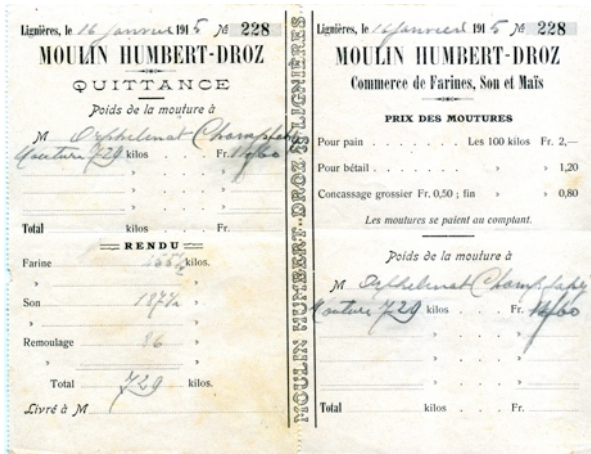 Lignières, le 16 janvier 1915 № 228
MOULIN HUMBERT-DROZ
QUITTANCE
Poids de la mouture à
M Orphelinat Champfahy
Mouture 729 kilos . . . Fr. 14/60
» . . . »
» . . . »
» . . . »
Total kilos . . . Fr.
RENDU
Farine 455½ kilos.
» »
Son 187½ »
» »
Remoulage 86 »
» »
Total 729 kilos.
Livré à M
MOULIN HUMBERT-DROZ SS LIGNIÈRES
Lignières, le 16 janvier 1915 № 228
MOULIN HUMBERT-DROZ
Commerce de Farines, Son et Maïs
PRIX DES MOUTURES
Pour pain . . . . . . Les 100 kilos Fr. 2,—
Pour bétail . . . . . . » » 1,20
Concassage grossier Fr. 0,50 ; fin » » 0,80
Les moutures se paient au comptant.
Poids de la mouture à
M Orphelinat Champfahy
Mouture 729 kilos . . . Fr. 14/60
» . . . »
» . . . »
» . . . »
Total kilos . . . Fr.